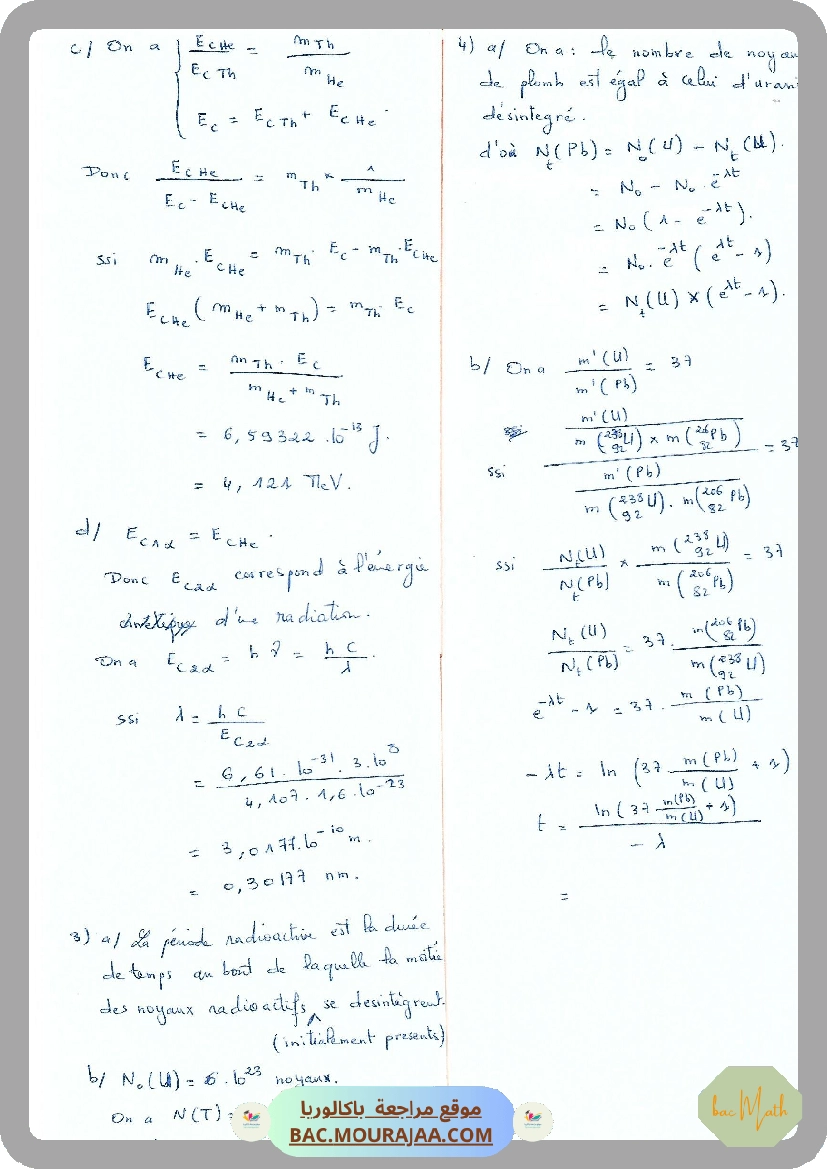 c/ On a { E_CHe / E_CTh = m_Th / m_He
E_C = E_CTh + E_CHe.
Donc E_CHe / (E_C - E_CHe) = m_Th × 1 / m_He
ssi m_He . E_CHe = m_Th . E_C - m_Th . E_CHe
E_CHe ( m_He + m_Th ) = m_Th . E_C
E_CHe = m_Th . E_C / (m_He + m_Th)
= 6,59322 . 10^-13 J.
= 4,121 MeV.
d/ E_C1α = E_CHe.
Donc E_C2α correspond à l'énergie
d'une radiation.
On a E_C2α = h ν = h C / λ.
ssi λ = h C / E_C2α
= 6,61 . 10^-31 . 3 . 10^8 / 4,107 . 1,6 . 10^-23
= 3,0177.10^-10 m.
= 0,30177 nm.
3) a/ La période radioactive est la durée
de temps au bout de laquelle la moitié
des noyaux radioactifs se desintègrent.
(initialement presents)
b/ N_0(U) = 5.10^23 noyaux.
On a N(T) =
4) a/ On a : le nombre de noyau
de plomb est égal à celui d'urani
désintegré.
d'où N_t(Pb) = N_0(U) - N_t(U).
= N_0 - N_0 . e^-λt
= N_0 ( 1 - e^-λt ).
= N_0 . e^-λt ( e^λt - 1 )
= N_t(U) × ( e^λt - 1 ).
b/ On a m'(U) / m'(Pb) = 37
ssi [ m'(U) / m(^238_92 U) × m(^26_82 Pb) ] / [ m'(Pb) / m(^238_92 U) . m(^206_82 Pb) ] = 37
ssi N_t(U) / N_t(Pb) × m(^238_92 U) / m(^206_82 Pb) = 37
N_t(U) / N_t(Pb) = 37 . m(^206_82 Pb) / m(^238_92 U)
e^-λt - 1 = 37 . m(Pb) / m(U)
-λt = ln ( 37 . m(Pb) / m(U) + 1 )
t = ln ( 37 m(Pb) / m(U) + 1 ) / - λ
=
موقع مراجعة باكالوريا
BAC.MOURAJAA.COM
bacMath